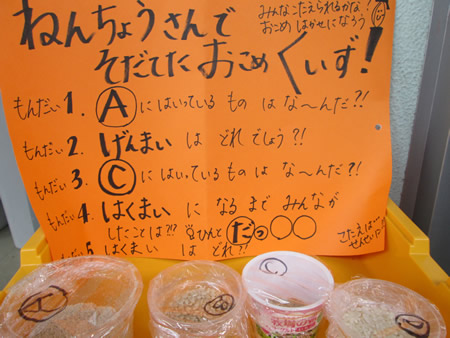 ねんちょうさんで
そだてた おこめ くいず!
みんなこたえられるかな?
おこめ はかせになろう
もんだい 1. Ⓐ にはいっている ものは な〜んだ?!
もんだい 2. げんまい は どれでしょう?!
もんだい 3. Ⓒ にはいっている ものは な〜んだ?!
もんだい 4. はくまい になるまで みんなが
したことは?!? ひんと だっ○○
もんだい 5. はくまい は どれ?!
こたえは…
せんせいに
C